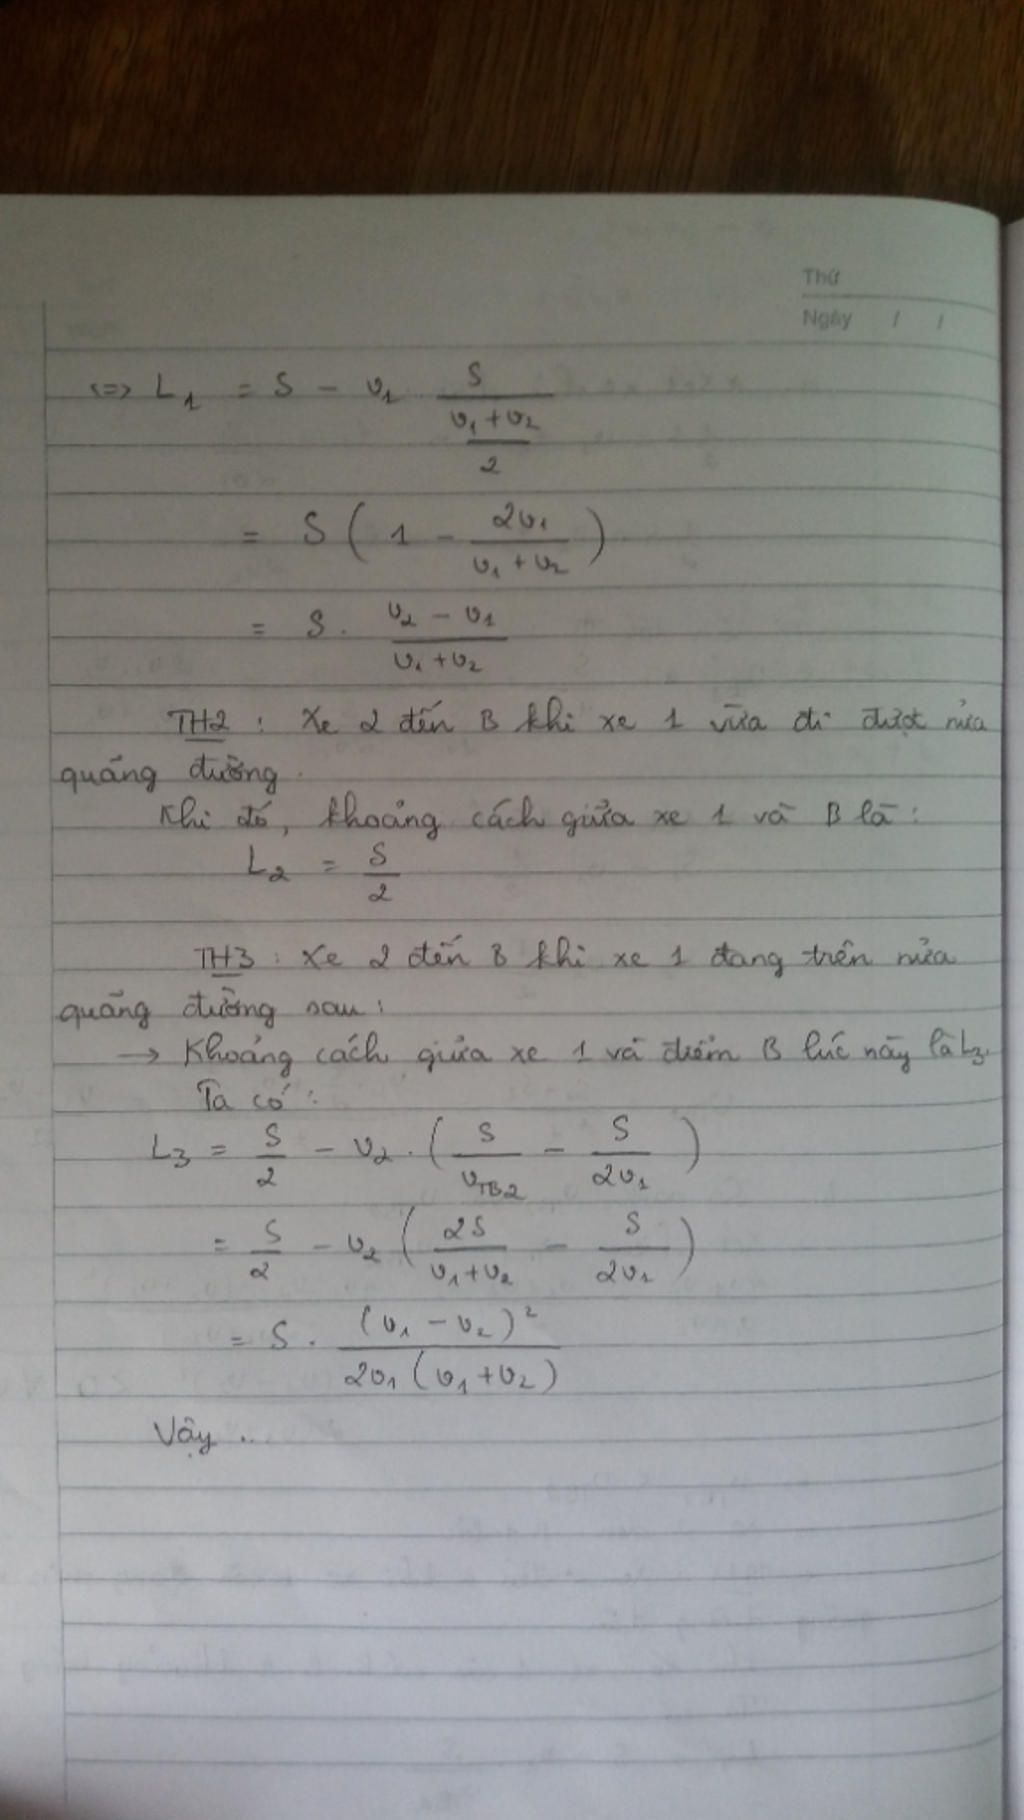 Thứ
Ngày / /
<=> L1 = S - v1 S/((v1+v2)/2)
= S ( 1 - 2v1/(v1+v2) )
= S . (v2 - v1)/(v1+v2)
TH2 : Xe 2 đến B khi xe 1 vừa đi được nửa
quãng đường.
Khi đó, khoảng cách giữa xe 1 và B là :
L2 = S/2
TH3 : Xe 2 đến B khi xe 1 đang trên nửa
quãng đường sau :
→ Khoảng cách giữa xe 1 và điểm B lúc này là L3.
Ta có :
L3 = S/2 - v2 . ( S/vTB2 - S/2v1 )
= S/2 - v2 ( 2S/(v1+v2) - S/2v1 )
= S . (v1 - v2)²/(2v1 (v1+v2))
Vậy ..